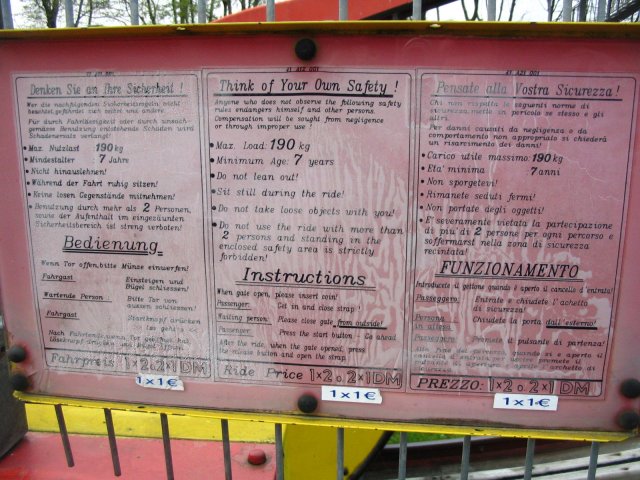 41 A12 001
Denken Sie an Ihre Sicherheit !
Wer die nachfolgenden Sicherheitsregeln nicht
beachtet, gefährdet sich selbst und andere.
Für durch Fahrlässigkeit oder durch unsach-
gemässe Benutzung entstehende Schäden wird
Schadenersatz verlangt!
• Max. Nutzlast 190 kg
• Mindestalter 7 Jahre
• Nicht hinauslehnen!
• Während der Fahrt ruhig sitzen!
• Keine losen Gegenstände mitnehmen!
• Benutzung durch mehr als 2 Personen,
sowie der Aufenthalt im eingezäunten
Sicherheitsbereich ist streng verboten!
Bedienung
Wenn Tor offen, bitte Münze einwerfen!
Fahrgast Einsteigen und
Bügel schliessen!
Wartende Person: Bitte Tor von
aussen schliessen!
Fahrgast Startknopf drücken
Nach Fahrtende, wenn Tor geöffnet hat,
Fahrpreis 1×2 o. 2×1 DM
1x1€
41 A12 001
Think of Your Own Safety !
Anyone who does not observe the following safety
rules endangers himself and other persons.
Compensation will be sought from negligence
or through improper use !
• Max. Load: 190 kg
• Minimum Age: 7 years
• Do not lean out!
• Sit still during the ride!
• Do not take loose objects with you!
• Do not use the ride with more than
2 persons and standing in the
enclosed safety area is strictly
forbidden!
Instructions
When gate open, please insert coin!
Passenger: Get in and close strap!
Waiting person: Please close gate from outside!
Passenger: Press the start button - Go ahead
After the ride, when the gate opened, press
the release button and open the strap
Ride Price 1×2 o. 2×1 DM
1x1€
41 A21 001
Pensate alla Vostra Sicurezza !
Chi non rispetta le seguenti norme di
sicurezza mette in pericolo se stesso e gli
altri.
Per danni causati da negligenza o da
comportamento non appropriato si chiederà
un risarcimento dei danni!
• Carico utile massimo: 190 kg
• Eta' minima 7 anni
• Non sporgetevi!
• Rimanete seduti fermi!
• Non portate degli oggetti!
• E' severamente vietata la partecipazione
di piu' di 2 persone per ogni percorso e
soffermarsi nella zona di sicurezza
recintata!
FUNZIONAMENTO
Introducete il gettone quando è aperto il cancello d'entrata!
Passeggero: Entrate e chiudete l'archetto
di sicurezza!
Persona
in attesa Chiudete la porta dall'esterno!
Passeggero: Premete il pulsante di partenza!
Fine del percorso, quando si è aperto il
PREZZO: 1×2 o. 2×1 DM
1x1€